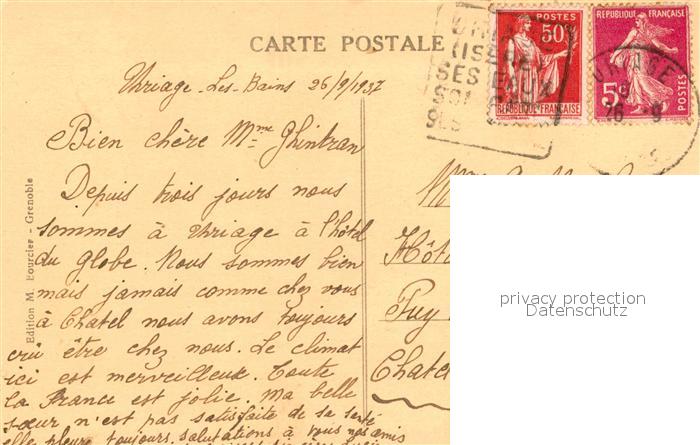 CARTE POSTALE
POSTES
50c
REPUBLIQUE FRANÇAISE
REPUBLIQUE FRANÇAISE
5c
POSTES
URIAGE
26 9
(ISERE
SES EAUX
SES
Uriage-Les-Bains 26/9/1937
Bien chère Mme
Depuis trois jours nous
sommes à Uriage à l'hôtel
du globe. Nous sommes bien
mais jamais comme chez vous
à Chatel nous avons toujours
cru être chez nous. Le climat
ici est merveilleux. Toute
la France est jolie. Ma belle
sœur n'est pas satisfaite de sa santé
elle pleure toujours. salutations à vous nos amis
Edition M. Fourcier - Grenoble
Hôte
Puy
Chatel
privacy protection
Datenschutz